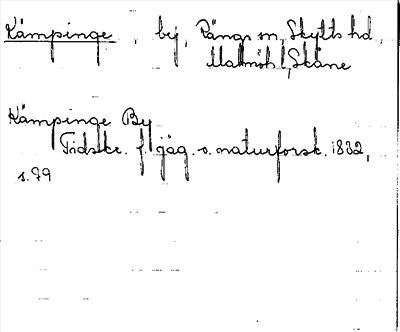 Kämpinge, by, Rängs sn, Skytts hd,
Malmöh l, Skåne
Kämpinge By
Tidskr. f. jäg. o. naturforsk. 1832,
s. 79